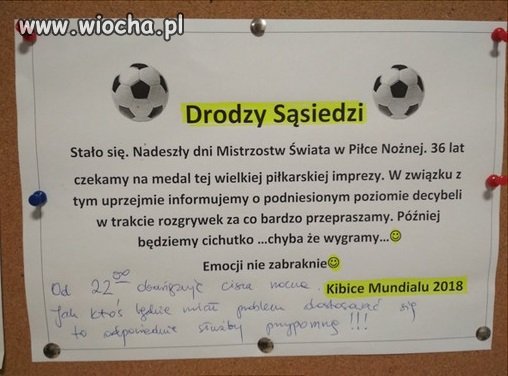 www.wiocha.pl
Drodzy Sąsiedzi
Stało się. Nadeszły dni Mistrzostw Świata w Piłce Nożnej. 36 lat
czekamy na medal tej wielkiej piłkarskiej imprezy. W związku z
tym uprzejmie informujemy o podniesionym poziomie decybeli
w trakcie rozgrywek za co bardzo przepraszamy. Później
będziemy cichutko …chyba że wygramy…☺
Emocji nie zabraknie☺
Kibice Mundialu 2018
Od 22⁰⁰ obowiązuje cisza nocna.
Jak ktoś będzie miał problem dostosować się
to odpowiednie służby przypomną !!!